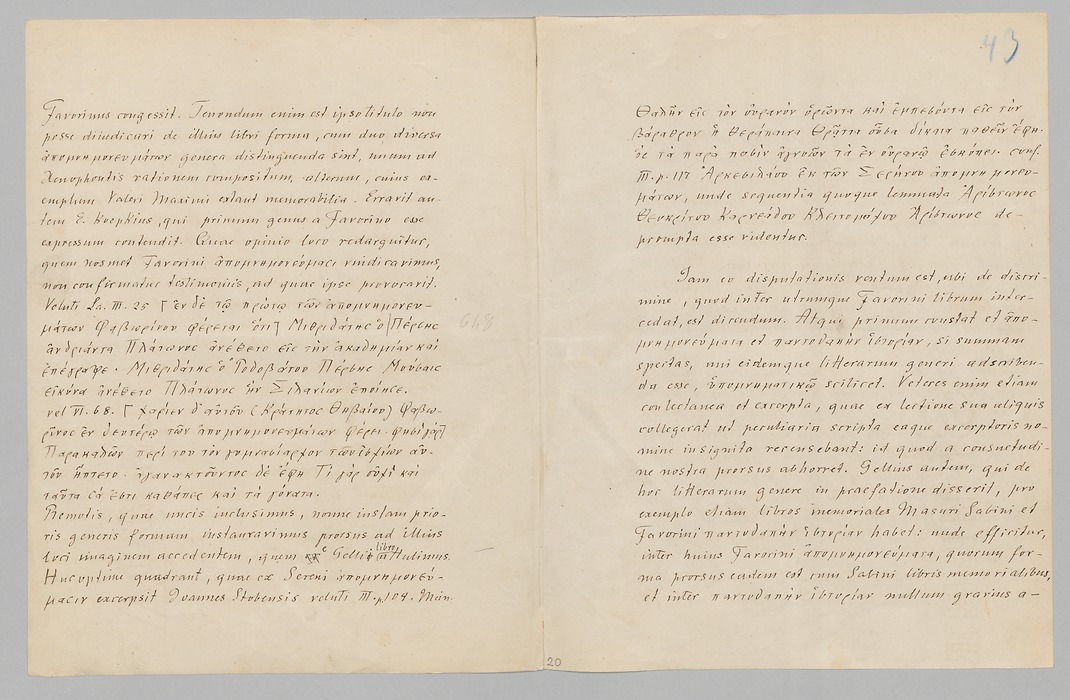 43
Favorinus congessit. Tenendum enim est ipso titulo non
posse diiudicari de illius libri forma, cum duo diversa
ἀπομνημονευμάτων genera distinguenda sint, unum ad
Xenophontis rationem compositum, alterum, cuius ex-
emplum Valeri Maximi extant memorabilia. Erravit au-
tem E. Koepkius, qui primum genus a Favorino esse
expressum contendit. Quae opinio loco redarguitur,
quem nosmet Favorini ἀπομνημονεύμασι vindicavimus,
non confirmatur testimoniis, ad quae ipse provocavit.
Veluti La. III. 25 ⌈ἐν δὲ τῷ πρώτῳ τῶν ἀπομνημονευ-
μάτων Φαβωρίνου φέρεται ὅτι⌉ Μιθριδάτης ὁ Πέρσης
ἀνδριάντα Πλάτωνος ἀνέθετο εἰς τὴν ἀκαδημίαν καὶ
ἐπέγραψε· Μιθριδάτης ὁ Ῥοδοβάτου Πέρσης Μούσαις
εἰκόνα ἀνέθετο Πλάτωνος ἣν Σιλανίων ἐποίησε.
vel VI. 68. ⌈Χαρίεν δ' αὐτοῦ (Κράτητος Θηβαίου) Φαβω-
ρῖνος ἐν δευτέρῳ τῶν ἀπομνημονευμάτων φέρει· φησὶ γάρ⌉
Παρακαλῶν περί του τὸν γυμνασίαρχον τῶν ἰσχίων αὐ-
τοῦ ἥπτετο· ἀγανακτοῦντος δὲ ἔφη Τί γὰρ οὐχὶ καὶ
ταῦτα σά ἐστι καθάπερ καὶ τὰ γόνατα.
Remotis, quae uncis inclusimus, nonne instam prio-
ris generis formam instauravimus prorsus ad illius
loci imaginem accedentem, quem e Gellii libro II hausimus.
Huc optime quadrant, quae ex Sereni ἀπομνημονεύ-
μασιν excerpsit Joannes Stobensis veluti III. p. 104. Mein.
648
Θαλῆν εἰς τὸν οὐρανὸν ὁρῶντα καὶ ἐμπεσόντα εἰς τὸν
βάραθρον ἡ θεράπαινα Θρᾷττα οὖσα δίκαια παθεῖν ἔφη·
ὃς τὰ παρὰ ποσὶν ἀγνοῶν τὰ ἐν οὐρανῷ ἐσκόπει. conf.
III. p. 117 Ἀρκεσιλάου ἐκ τῶν Σερήνου ἀπομνημονευ-
μάτων, unde sequentia quoque lemmata Ἀρίστωνος
Θεοκρίτου Καρνεάδου Κλειτομάχου Ἀρίστωνος de-
prompta esse videntur.
Iam eo disputationis ventum est, ubi de discri-
mine, quod inter utrumque Favorini librum inter-
cedat, est dicendum. Atqui primum constat et ἀπο-
μνημονεύματα et παντοδαπὴν ἱστορίαν, si summam
spectas, uni eidemque litterarum generi adscriben-
da esse, ὑπομνηματικῷ scilicet. Veteres enim etiam
conlectanea et excerpta, quae ex lectione sua aliquis
collegerat ut peculiaria scripta eaque excerptoris no-
mine insignita recensebant: id quod a consuetudi-
ne nostra prorsus abhorret. Gellius autem, qui de
hoc litterarum genere in praefatione disserit, pro
exemplo etiam libros memoriales Masuri Sabini et
Favorini παντοδαπὴν ἱστορίαν habet: unde efficitur,
inter huius Favorini ἀπομνημονεύματα, quorum for-
ma prorsus eadem est cum Sabini libris memorialibus,
et inter παντοδαπὴν ἱστορίαν nullum gravius a-
20